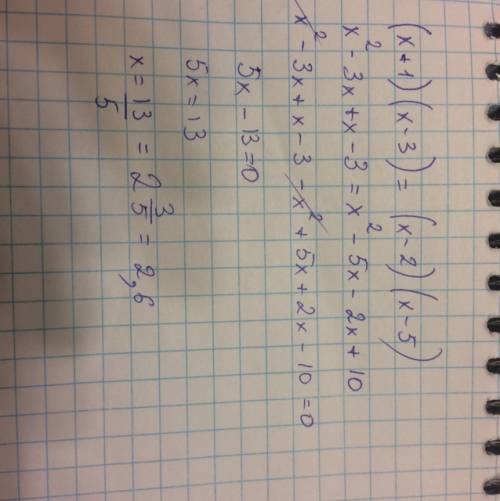 (x+1)(x-3) = (x-2)(x-5)
x² - 3x + x - 3 = x² - 5x - 2x + 10
x² - 3x + x - 3 - x² + 5x + 2x - 10 = 0
5x - 13 = 0
5x = 13
x = 13/5 = 2 3/5 = 2,6